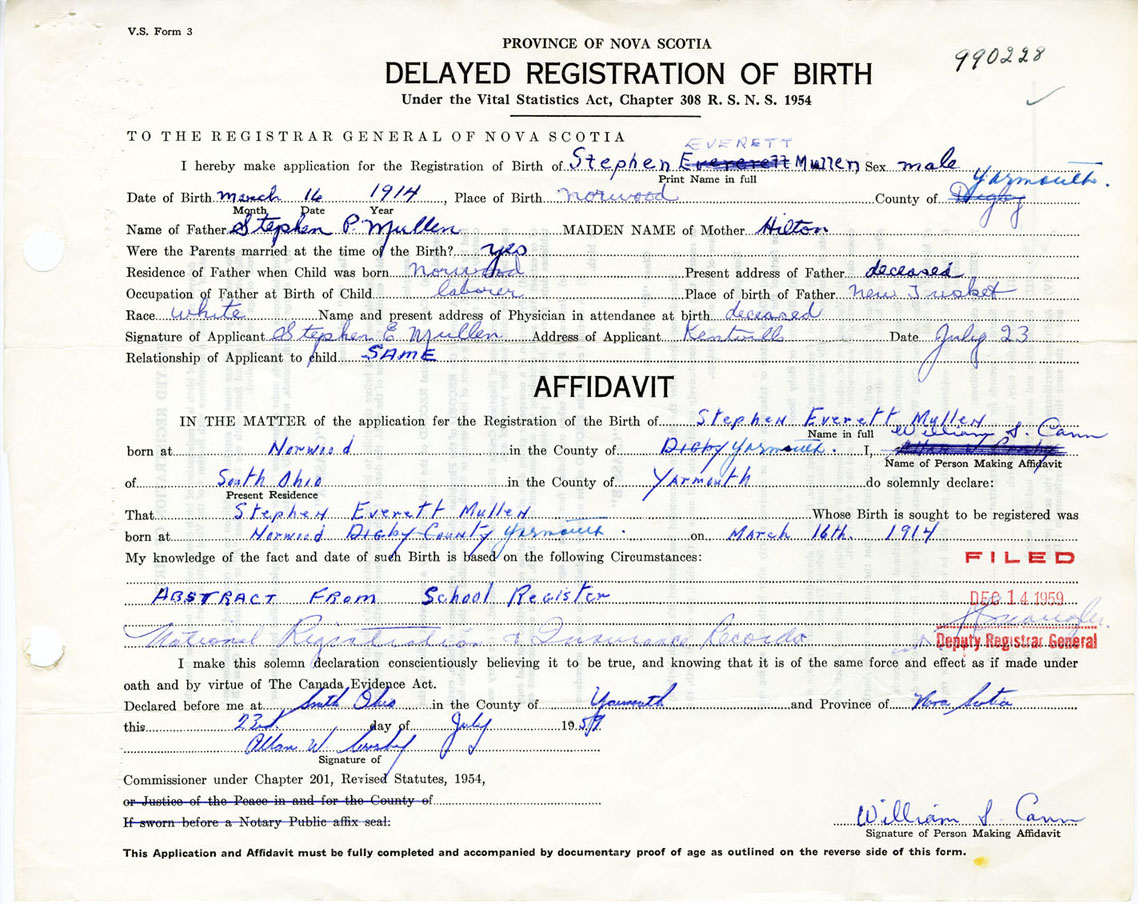 V.S. Form 3
PROVINCE OF NOVA SCOTIA
990228
DELAYED REGISTRATION OF BIRTH
Under the Vital Statistics Act, Chapter 308 R. S. N. S. 1954
TO THE REGISTRAR GENERAL OF NOVA SCOTIA
EVERETT
I hereby make application for the Registration of Birth of Stephen Evererett Mullen Sex male
Print Name in full
Yarmouth.
Date of Birth March 16 1914, Place of Birth Norwood County of Digby
Month Date Year
Name of Father Stephen P. Mullen MAIDEN NAME of Mother Hilton
Were the Parents married at the time of the Birth? yes
Residence of Father when Child was born Norwood Present address of Father deceased
Occupation of Father at Birth of Child laborer Place of birth of Father New Tusket
Race White Name and present address of Physician in attendance at birth deceased
Signature of Applicant Stephen E Mullen Address of Applicant Kentville Date July 23
Relationship of Applicant to child SAME
AFFIDAVIT
IN THE MATTER of the application for the Registration of the Birth of Stephen Everett Mullen
Name in full William S. Cann
born at Norwood in the County of Digby Yarmouth. I, Allan W Crosby
Name of Person Making Affidavit
of South Ohio in the County of Yarmouth do solemnly declare:
Present Residence
That Stephen Everett Mullen Whose Birth is sought to be registered was
born at Norwood Digby County Yarmouth on March 16th. 1914
My knowledge of the fact and date of such Birth is based on the following Circumstances:
FILED
Abstract From School Register
DEC 14 1959
National Registration & Insurance Records
Deputy Registrar General
I make this solemn declaration conscientiously believing it to be true, and knowing that it is of the same force and effect as if made under
oath and by virtue of The Canada Evidence Act.
Declared before me at South Ohio in the County of Yarmouth and Province of Nova Scotia
this 23rd. day of July 1959
Allan W. Crosby
Signature of
Commissioner under Chapter 201, Revised Statutes, 1954,
or Justice of the Peace in and for the County of
If sworn before a Notary Public affix seal:
William S. Cann
Signature of Person Making Affidavit
This Application and Affidavit must be fully completed and accompanied by documentary proof of age as outlined on the reverse side of this form.